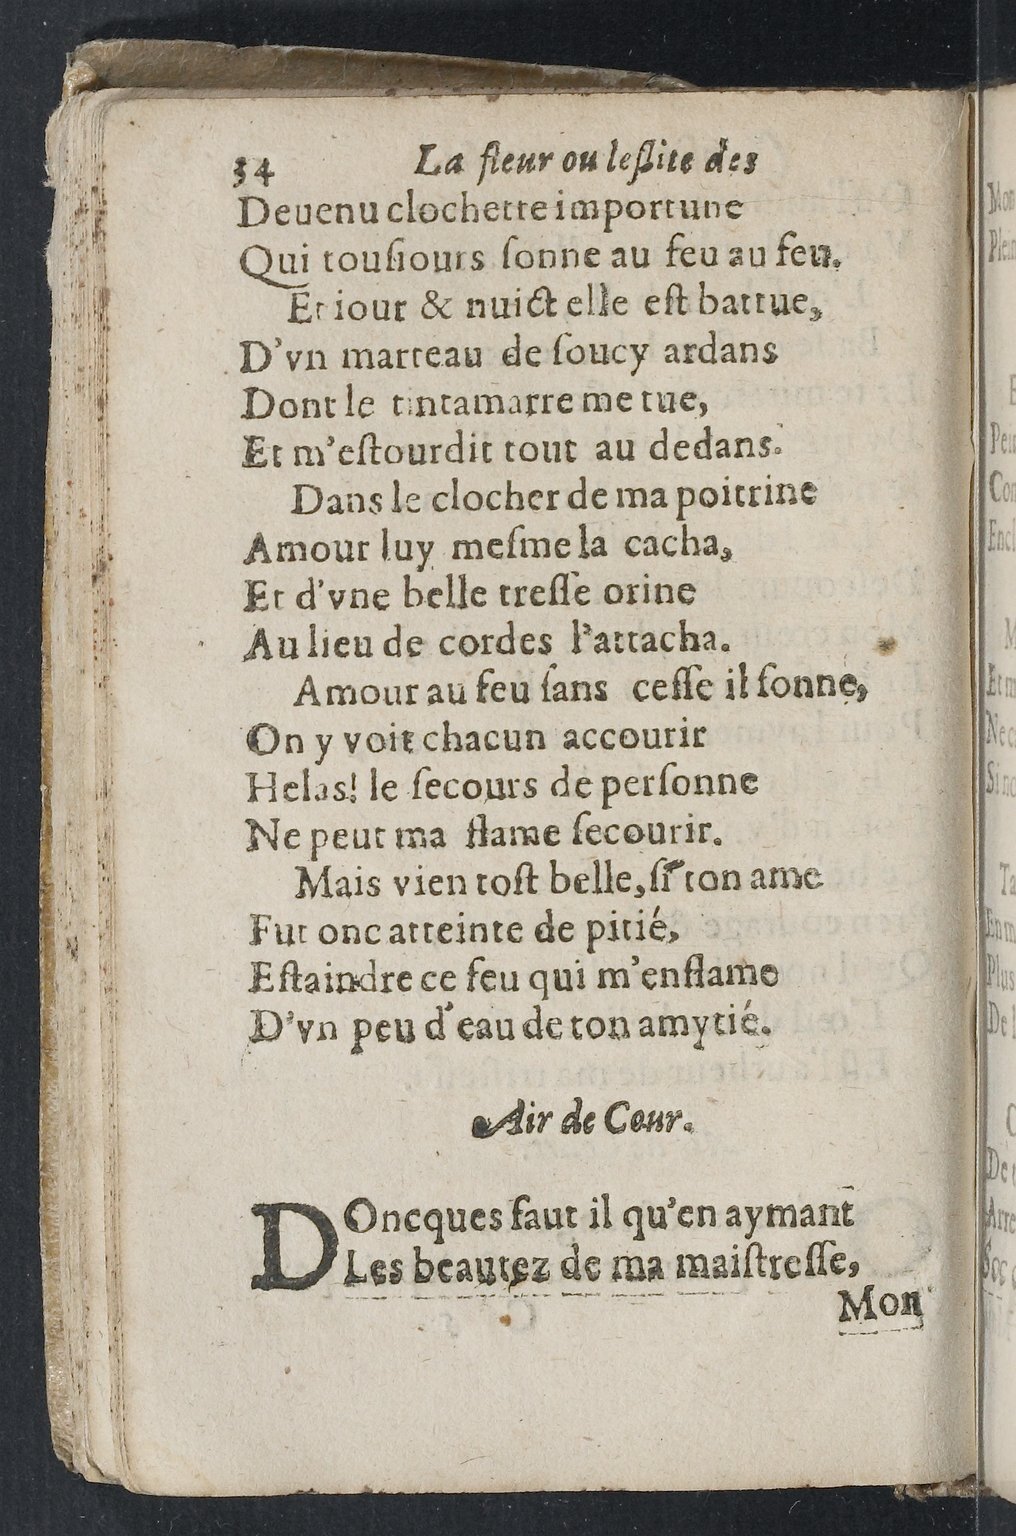 34 La fleur ou leſlite des
Deuenu clochette importune
Qui touſiours ſonne au feu au feu.
Et iour & nuict elle eſt battue,
D'vn marteau de ſoucy ardans
Dont le tintamarre me tue,
Et m'eſtourdit tout au dedans.
Dans le clocher de ma poitrine
Amour luy meſme la cacha,
Et d'vne belle treſſe orine
Au lieu de cordes l'attacha.
Amour au feu ſans ceſſe il ſonne,
On y voit chacun accourir
Helas! le ſecours de perſonne
Ne peut ma flame ſecourir.
Mais vien toſt belle, ſi ton ame
Fut onc atteinte de pitié,
Eſtaindre ce feu qui m'enflame
D'vn peu d'eau de ton amytié.
Air de Cour.
DOncques faut il qu'en aymant
Les beautez de ma maiſtreſſe,
Mon